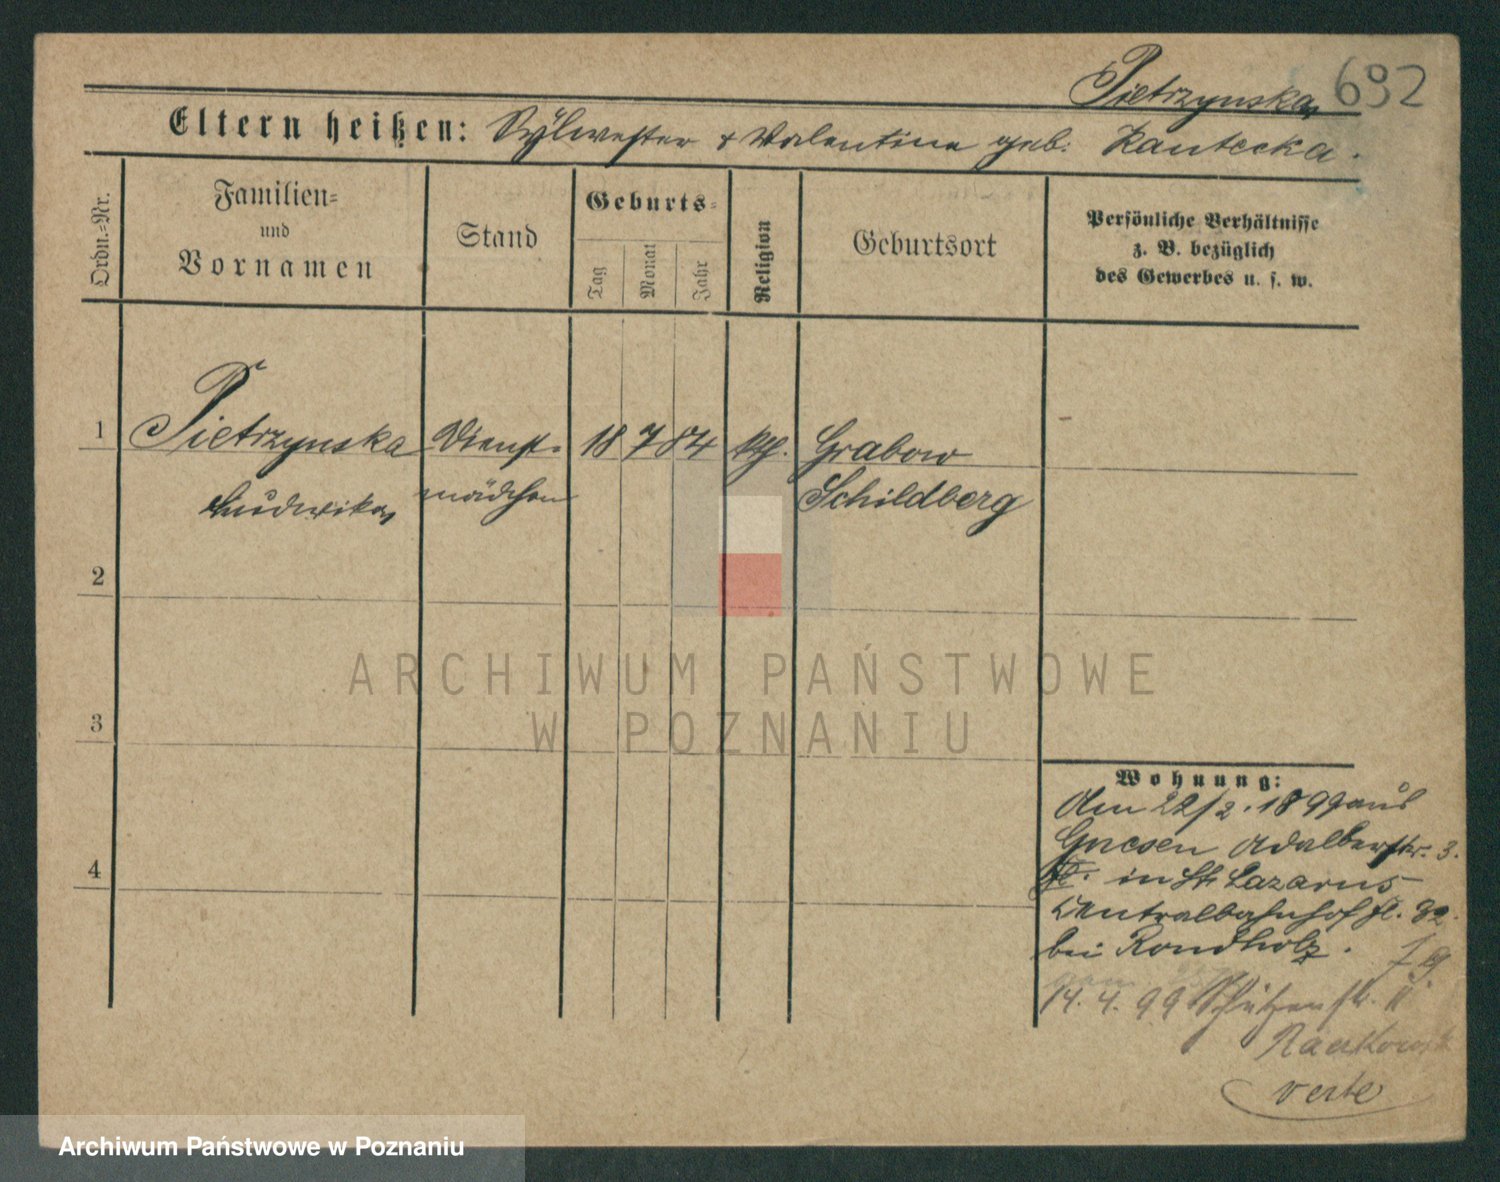 Pietrzynska 692
Eltern heißen: Sylwester & Valentine geb. Kantecka.
Ordn.-Nr.
Familien-
und
Vornamen
Stand
Geburts-
Tag
Monat
Jahr
Religion
Geburtsort
Persönliche Verhältnisse
z. B. bezüglich
des Gewerbes u. s. w.
1 Pietrzynska Dienst- 18 7 84 kth. Grabow
Ludwika mädchen Schildberg
2
3
4
ARCHIWUM PAŃSTWOWE
W POZNANIU
Wohnung:
Am 22/2. 1899 aus
Gnesen Adalbertstr. 3.
in St. Lazarus
Centralbahnhof fl. 32.
bei Rondholz.
14. 4. 99 Schützenstr.
verte
Archiwum Państwowe w Poznaniu